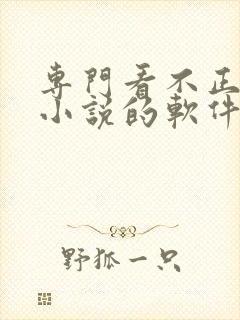 專門看不正
小說的軟件
野狐一只